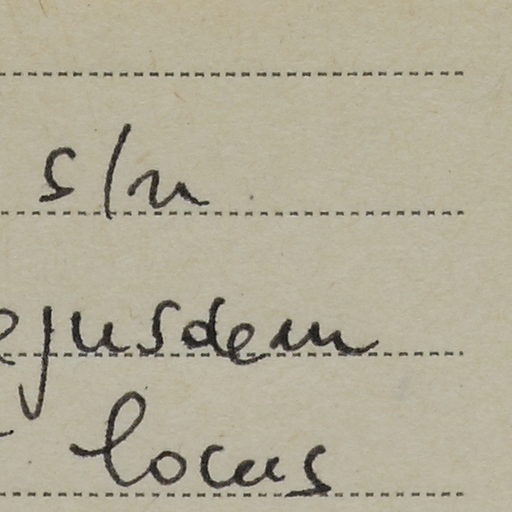 s/n
ejusdem
locus